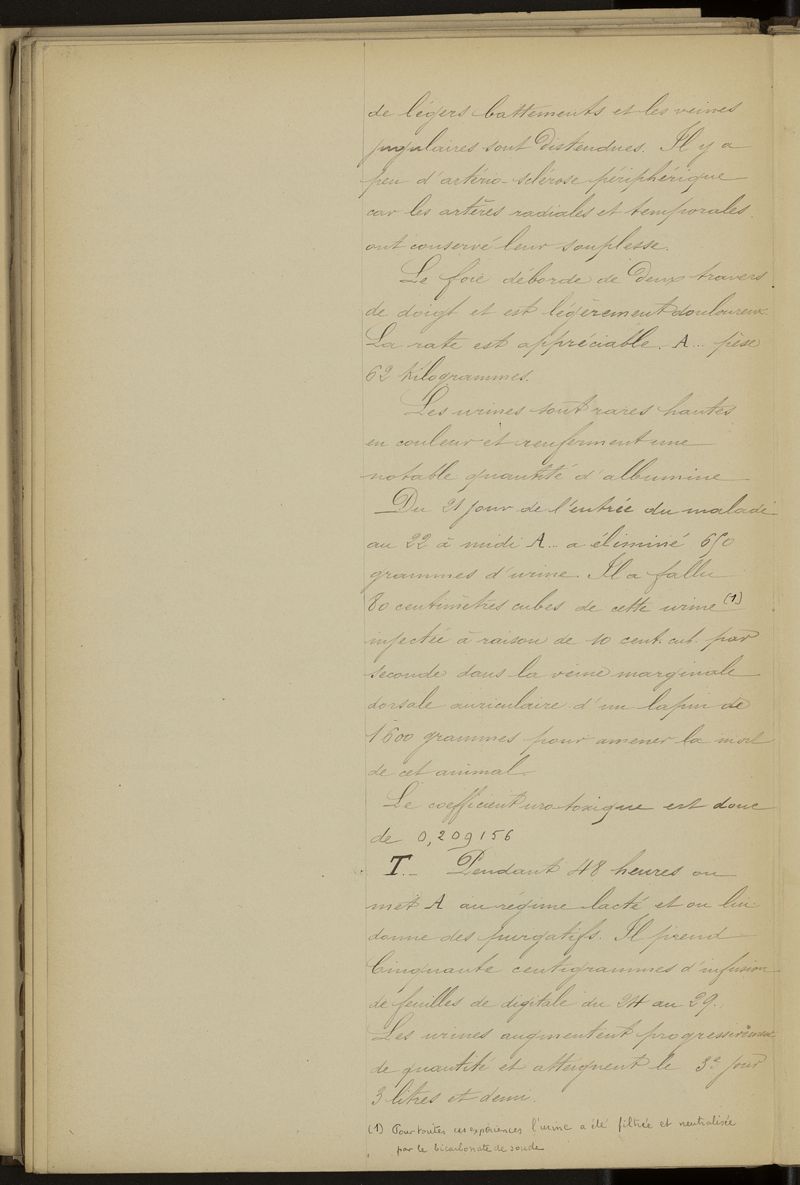 de légers battements et les veines
jugulaires sont distendues. Il y a
peu d'artério-sclérose périphérique
car les artères radiales et temporales
ont conservé leur souplesse.
Le foie déborde de deux travers
de doigt et est légèrement douloureux.
La rate est appréciable. A... pèse
62 kilogrammes.
Les urines sont rares hautes
en couleur et renferment une
notable quantité d'albumine
Du 21 jour de l'entrée du malade
au 22 à midi A... a éliminé 650
grammes d'urine. Il a fallu
80 centimètres cubes de cette urine (1)
injectée à raison de 10 cent. cub. par
seconde dans la veine marginale
dorsale auriculaire d'un lapin de
1600 grammes pour amener la mort
de cet animal.
Le coefficient uro toxique est donc
de 0,209156
T.- Pendant 48 heures on
met A au régime lacté et on lui
donne des purgatifs. Il prend
Cinquante centigrammes d'infusion
de feuilles de digitale du 24 au 29.
Les urines augmentent progressivement
de quantité et atteignent le 3e jour
3 litres et demi.
(1) Pour toutes ces expériences l'urine a été filtrée et neutralisée
par le bicarbonate de soude